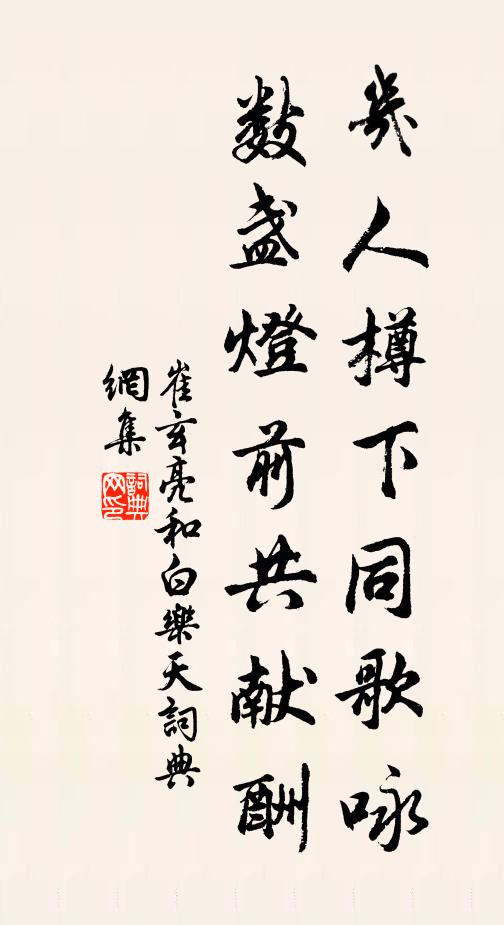 幾人樽下同歌咏
數盏燈前共献酬
崔玄亮和白樂天詞典
網集
詞典
网印